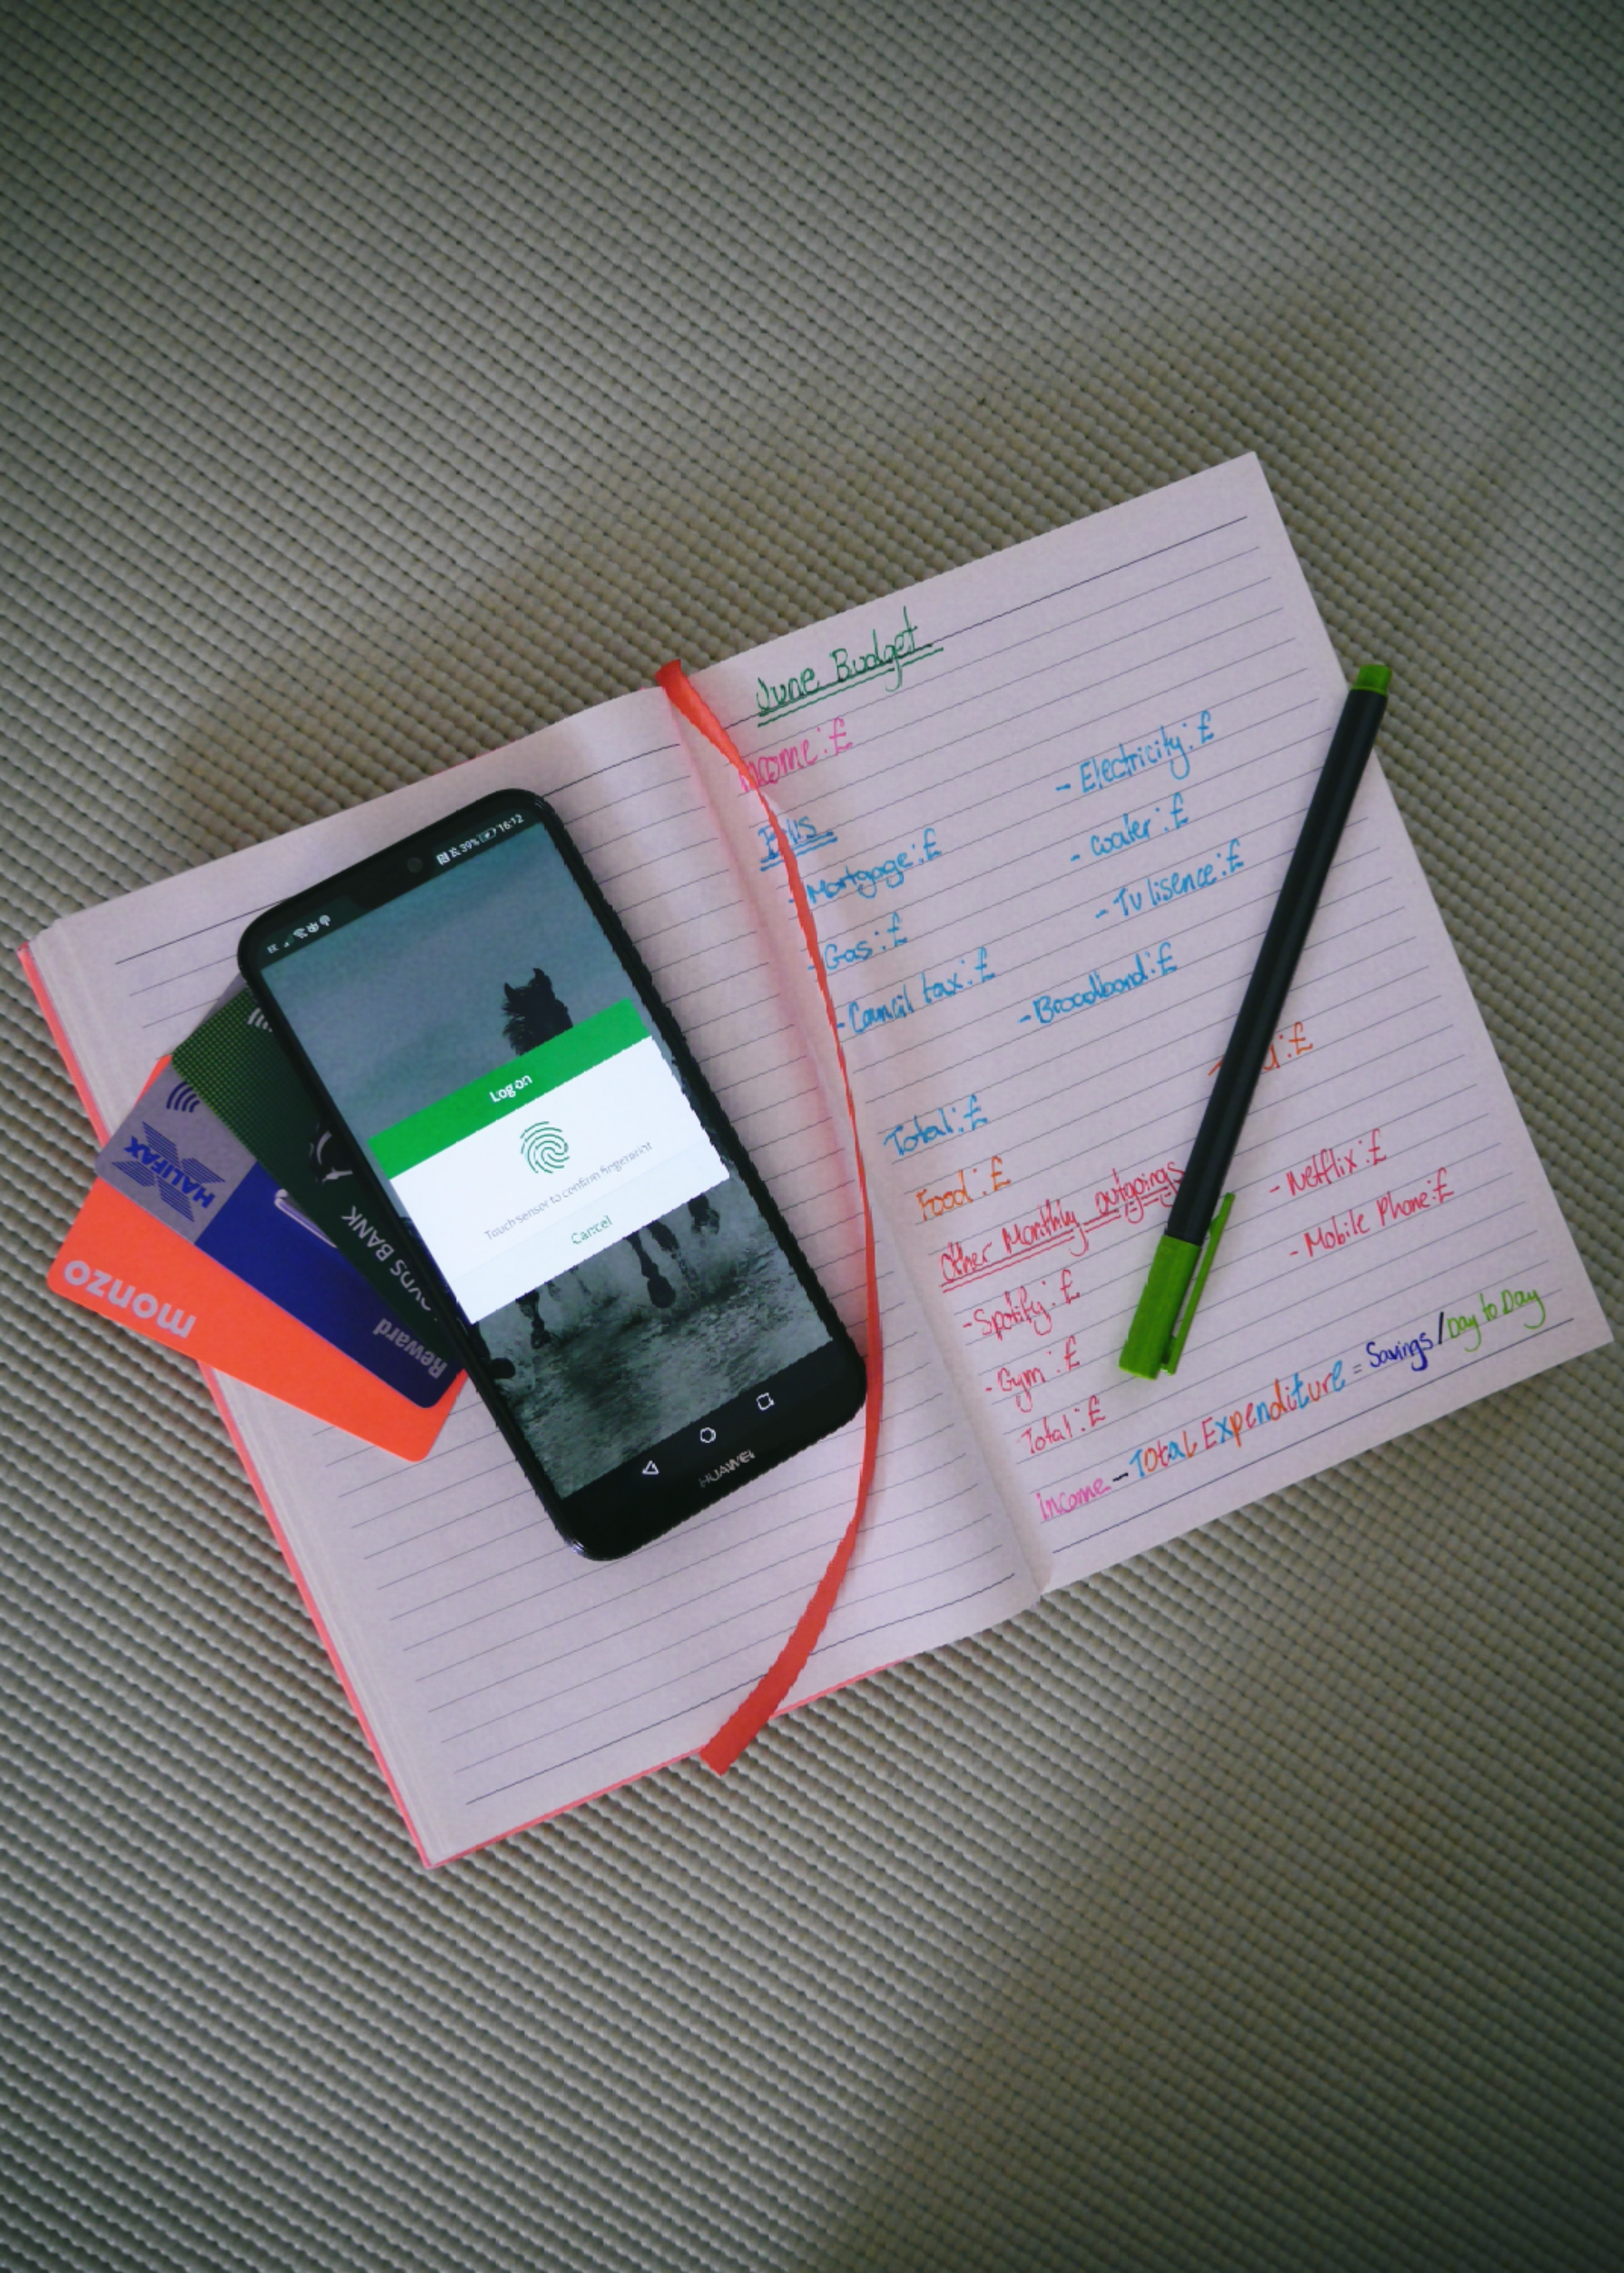 June Budget
Income:£
Bills
- Mortgage:£
- Gas:£
- Council tax:£
- Electricity:£
- Water:£
- TV lisence:£
- Broadband:£
Total:£
Food:£
Other Monthly outgoings
- Spotify:£
- Gym:£
- Netflix:£
- Mobile Phone:£
Total:£
Income - Total Expenditure = Savings/Day to Day
39% 16:12
Log on
Touch sensor to confirm fingerprint
Cancel
HUAWEI
BANK
HALIFAX
Reward
monzo